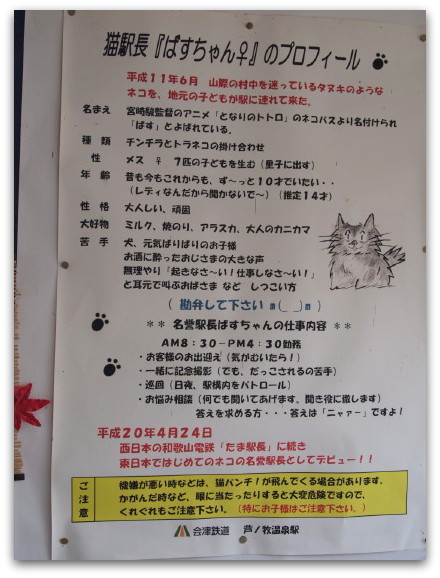 猫駅長『ばすちゃん♀』のプロフィール
平成11年6月 山際の村中を迷っているタヌキのような
ネコを、地元の子どもが駅に連れて来た。
名まえ 宮崎駿監督のアニメ「となりのトトロ」のネコバスより名付けられ
「ばす」とよばれている。
種類 チンチラとトラネコの掛け合わせ
性 メス ♀ 7匹の子どもを生む（里子に出す）
年齢 昔も今もこれからも、ず～っと10才でいたい・・
（レディなんだから聞かないで～）（推定14才）
性格 大人しい、頑固
大好物 ミルク、焼のり、アラスカ、大人のカニカマ
苦手 犬、元気ばりばりのお子様
お酒に酔ったおじさまの大きな声
無理やり「起きなさ～い！仕事しなさ～い！」
と耳元で叫ぶおばさま など しつこい方
（ 勘弁して下さい m(_ _)m ）
** 名誉駅長ばすちゃんの仕事内容 **
AM8：30-PM4：30勤務
・お客様のお出迎え（気がむいたら！）
・一緒に記念撮影（でも、だっこされるの苦手）
・巡回（日夜、駅構内をパトロール）
・お悩み相談（何でも聞いてあげます。聞き役に徹します）
答えを求める方・・・答えは「ニャァー」ですよ！
平成20年4月24日
西日本の和歌山電鉄「たま駅長」に続き
東日本ではじめてのネコの名誉駅長としてデビュー！！
ご注意
機嫌が悪い時などは、猫パンチ！が飛んでくる場合があります。
かがんだ時など、眼に当たったりすると大変危険ですので、
くれぐれもご注意下さい。（特にお子様はご注意下さい。）
会津鉄道 芦ノ牧温泉駅